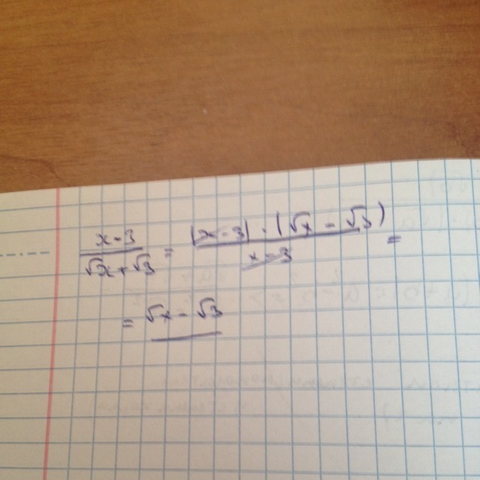 (x-3)/(√x+√3) = ((x-3)·(√x-√3))/(x-3) =
= √x-√3